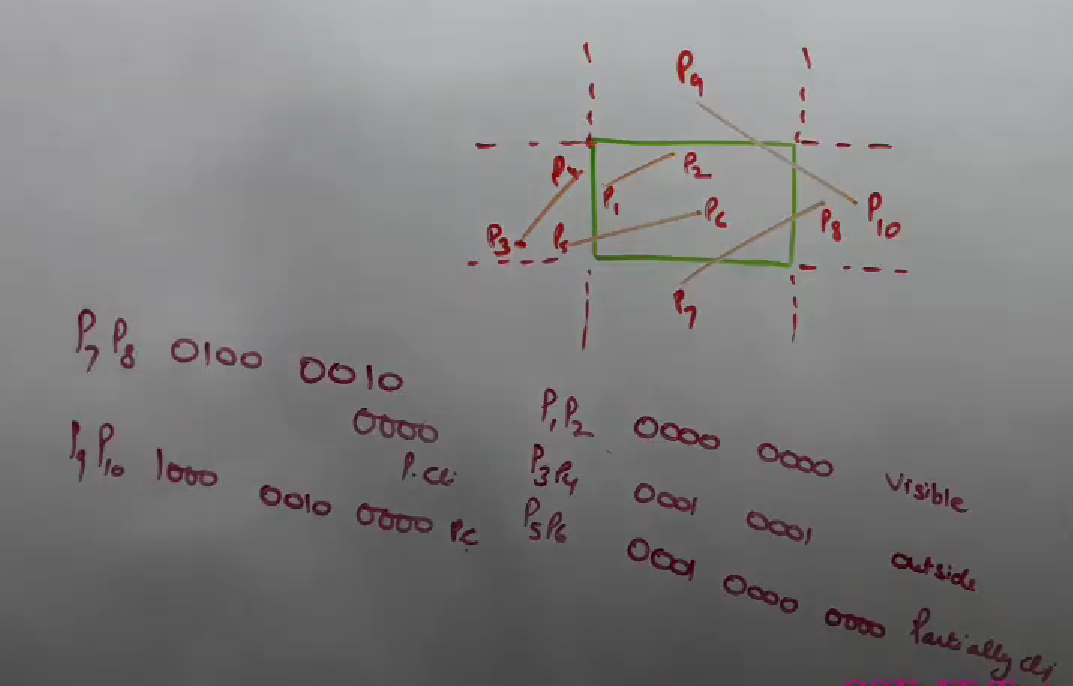 P9
P4
P2
P1
P3
P5
P6
P8
P10
P7
P7 P8 0100 0010
0000
P. Cli
P9 P10 1000 0010 0000 PC
P1 P2 0000 0000 Visible
P3 P4 0001 0001 outside
P5 P6 0001 0000 0000 Partially cli